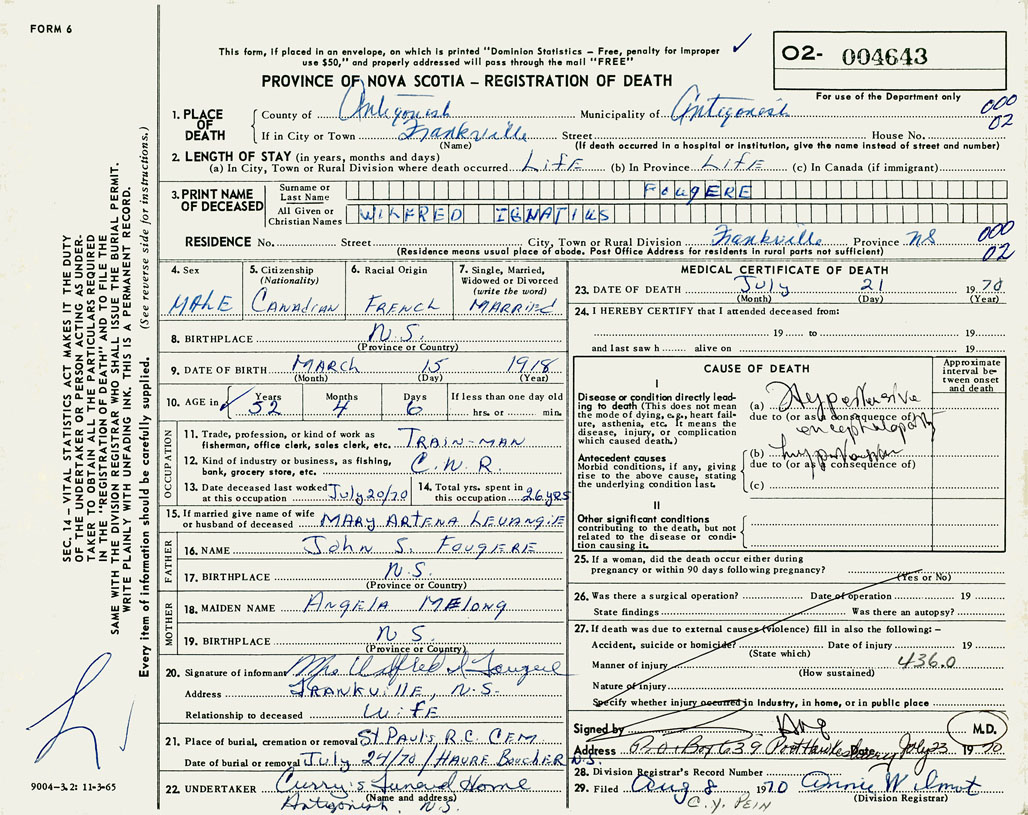 FORM 6
This form, if placed in an envelope, on which is printed "Dominion Statistics – Free, penalty for improper
use $50," and properly addressed will pass through the mail "FREE"
O2- 004643
For use of the Department only
PROVINCE OF NOVA SCOTIA – REGISTRATION OF DEATH
000
02
1. PLACE OF DEATH
County of Antigonish Municipality of Antigonish
If in City or Town Frankville Street House No.
(Name) (If death occurred in a hospital or institution, give the name instead of street and number)
2. LENGTH OF STAY (in years, months and days)
(a) In City, Town or Rural Division where death occurred LIFE (b) In Province LIFE (c) In Canada (if immigrant)
3. PRINT NAME OF DECEASED
Surname or Last Name FOUGERE
All Given or Christian Names WILFRED IGNATIUS
RESIDENCE No. Street City, Town or Rural Division Frankville Province NS
(Residence means usual place of abode. Post Office Address for residents in rural parts not sufficient)
000
02
4. Sex
MALE
5. Citizenship
(Nationality)
CANADIAN
6. Racial Origin
FRENCH
7. Single, Married,
Widowed or Divorced
(write the word)
MARRIED
8. BIRTHPLACE N.S.
(Province or Country)
9. DATE OF BIRTH MARCH 15 1918
(Month) (Day) (Year)
10. AGE in Years Months Days If less than one day old
52 4 6 hrs. or min.
OCCUPATION
11. Trade, profession, or kind of work as
fisherman, office clerk, sales clerk, etc. TRAIN-MAN
12. Kind of industry or business, as fishing,
bank, grocery store, etc. C.N.R.
13. Date deceased last worked
at this occupation July 20/70
14. Total yrs. spent in
this occupation 26 YRS
15. If married give name of wife
or husband of deceased MARY ARTENA LEVANGIE
FATHER
16. NAME John S. FOUGERE
17. BIRTHPLACE N.S.
(Province or Country)
MOTHER
18. MAIDEN NAME ANGELA MELONG
19. BIRTHPLACE N S.
(Province or Country)
20. Signature of informant Mrs Wilfred I Fougere
Address FRANKVILLE, N.S.
Relationship to deceased WIFE
21. Place of burial, cremation or removal St PAUL'S R.C. CEM.
Date of burial or removal July 24/70 / HAVRE BOUCHER N.S.
22. UNDERTAKER Curry's Funeral Home
(Name and address)
Antigonish, N.S.
MEDICAL CERTIFICATE OF DEATH
23. DATE OF DEATH July 21 1970
(Month) (Day) (Year)
24. I HEREBY CERTIFY that I attended deceased from:
19 to 19
and last saw h alive on 19
CAUSE OF DEATH
Approximate
interval be-
tween onset
and death
I
Disease or condition directly lead-
ing to death (This does not mean
the mode of dying, e.g., heart fail-
ure, asthenia, etc. It means the
disease, injury, or complication
which caused death.)
(a) Hypertensive
due to (or as a consequence of)
encephalopathy
Antecedent causes
Morbid conditions, if any, giving
rise to the above cause, stating
the underlying condition last.
(b) hypertension
due to (or as a consequence of)
(c)
II
Other significant conditions
contributing to the death, but not
related to the disease or condi-
tion causing it.
25. If a woman, did the death occur either during
pregnancy or within 90 days following pregnancy?
(Yes or No)
26. Was there a surgical operation? Date of operation 19
State findings Was there an autopsy?
27. If death was due to external causes (violence) fill in also the following: –
Accident, suicide or homicide? Date of injury 19
(State which)
Manner of injury 436.0
(How sustained)
Nature of injury
Specify whether injury occurred in industry, in home, or in public place
Signed by M.D.
Address P.O. Box 639 Port Hawkesbury Date July 23 1970
28. Division Registrar's Record Number
29. Filed Aug 8 1970 Annie W Wilmot
(Division Registrar)
C.Y. PEIN
SEC. 14 – VITAL STATISTICS ACT MAKES IT THE DUTY
OF THE UNDERTAKER OR PERSON ACTING AS UNDER-
TAKER TO OBTAIN ALL THE PARTICULARS REQUIRED
IN THE "REGISTRATION OF DEATH" AND TO FILE THE
SAME WITH THE DIVISION REGISTRAR WHO SHALL ISSUE THE BURIAL PERMIT.
WRITE PLAINLY WITH UNFADING INK. THIS IS A PERMANENT RECORD.
Every item of information should be carefully supplied. (See reverse side for instructions.)
9004–3.2: 11-3-65